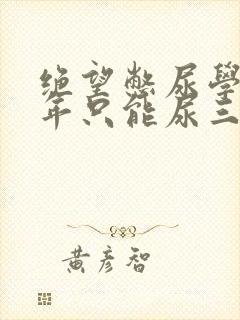 绝望憋尿學
年只能尿三
黄彦智